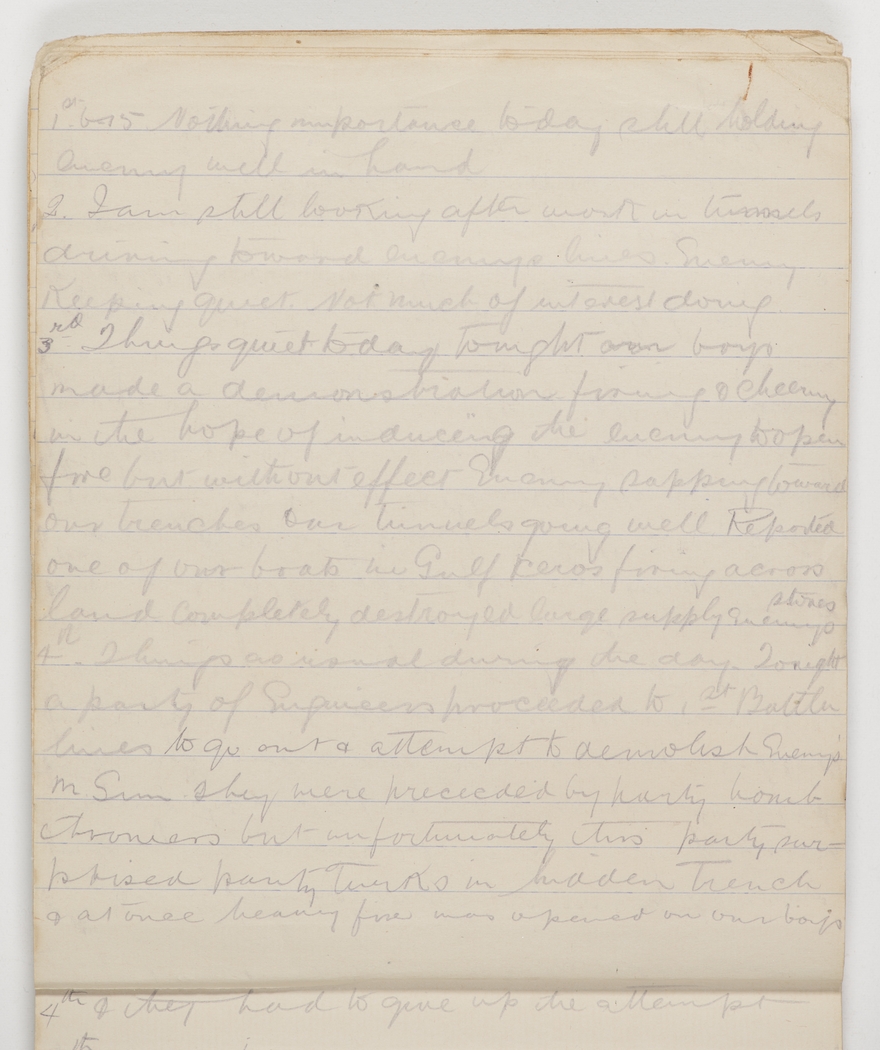 1st 6-15 Nothing importance today still holding
enemy well in hand
2. I am still looking after work in tunnels
driving toward enemys lines. Enemy
Keeping quiet. Not much of interest doing
3rd. Things quiet today tonight our boys
made a demonstration firing & cheering
in the hope of inducing the enemy to open
fire but without effect Enemy sapping toward
our trenches our tunnels going well. Reported
one of our boats in Gulf Xeros firing across
land completely destroyed large supply Enemys stores
4th. Things as usual during the day. Tonight
a party of Engineers proceeded to 1st Battln
lines to go out & attempt to demolish Enemy's
M Gun they were preceeded by party bomb
throwers but unfortunately this party sur-
prised party Turks in hidden trench
& at once heavy fire was opened on our boys
4th & they had to give up the attempt
th